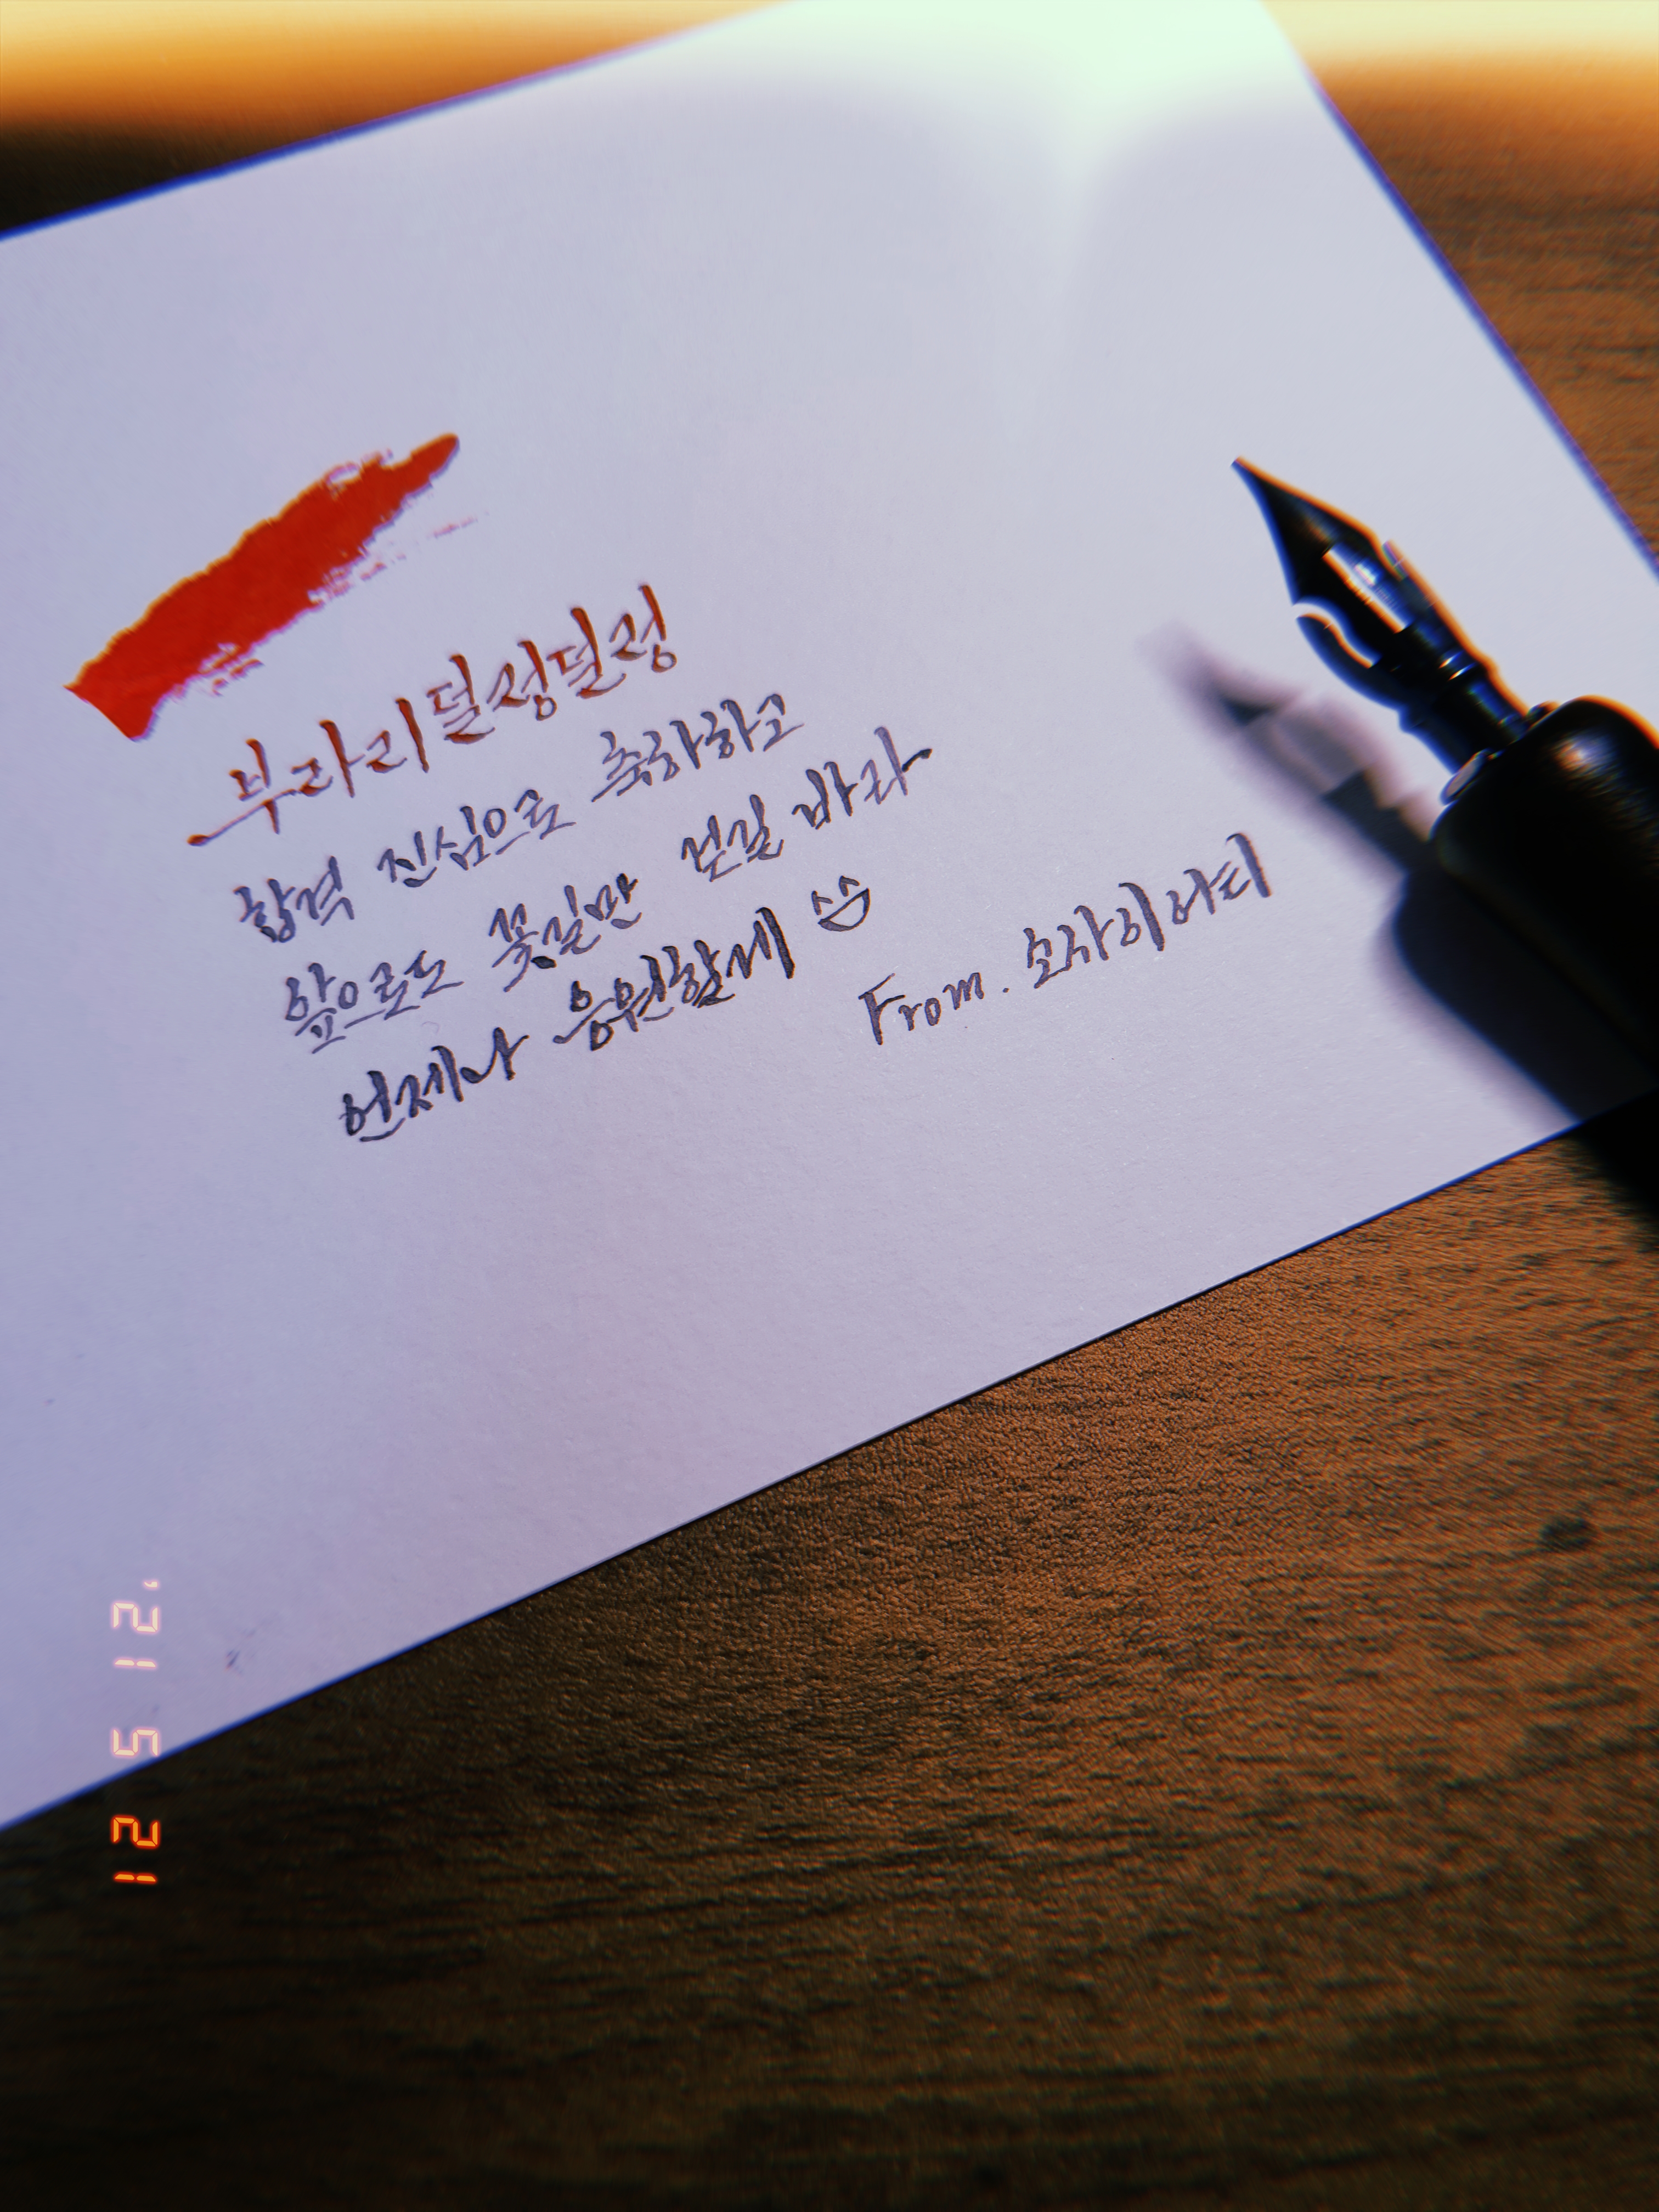 부라리덜렁덜렁
합격 진심으로 축하하고
앞으로도 꽃길만 걷길 바라
언제나 응원할게
From.
'21 5 21